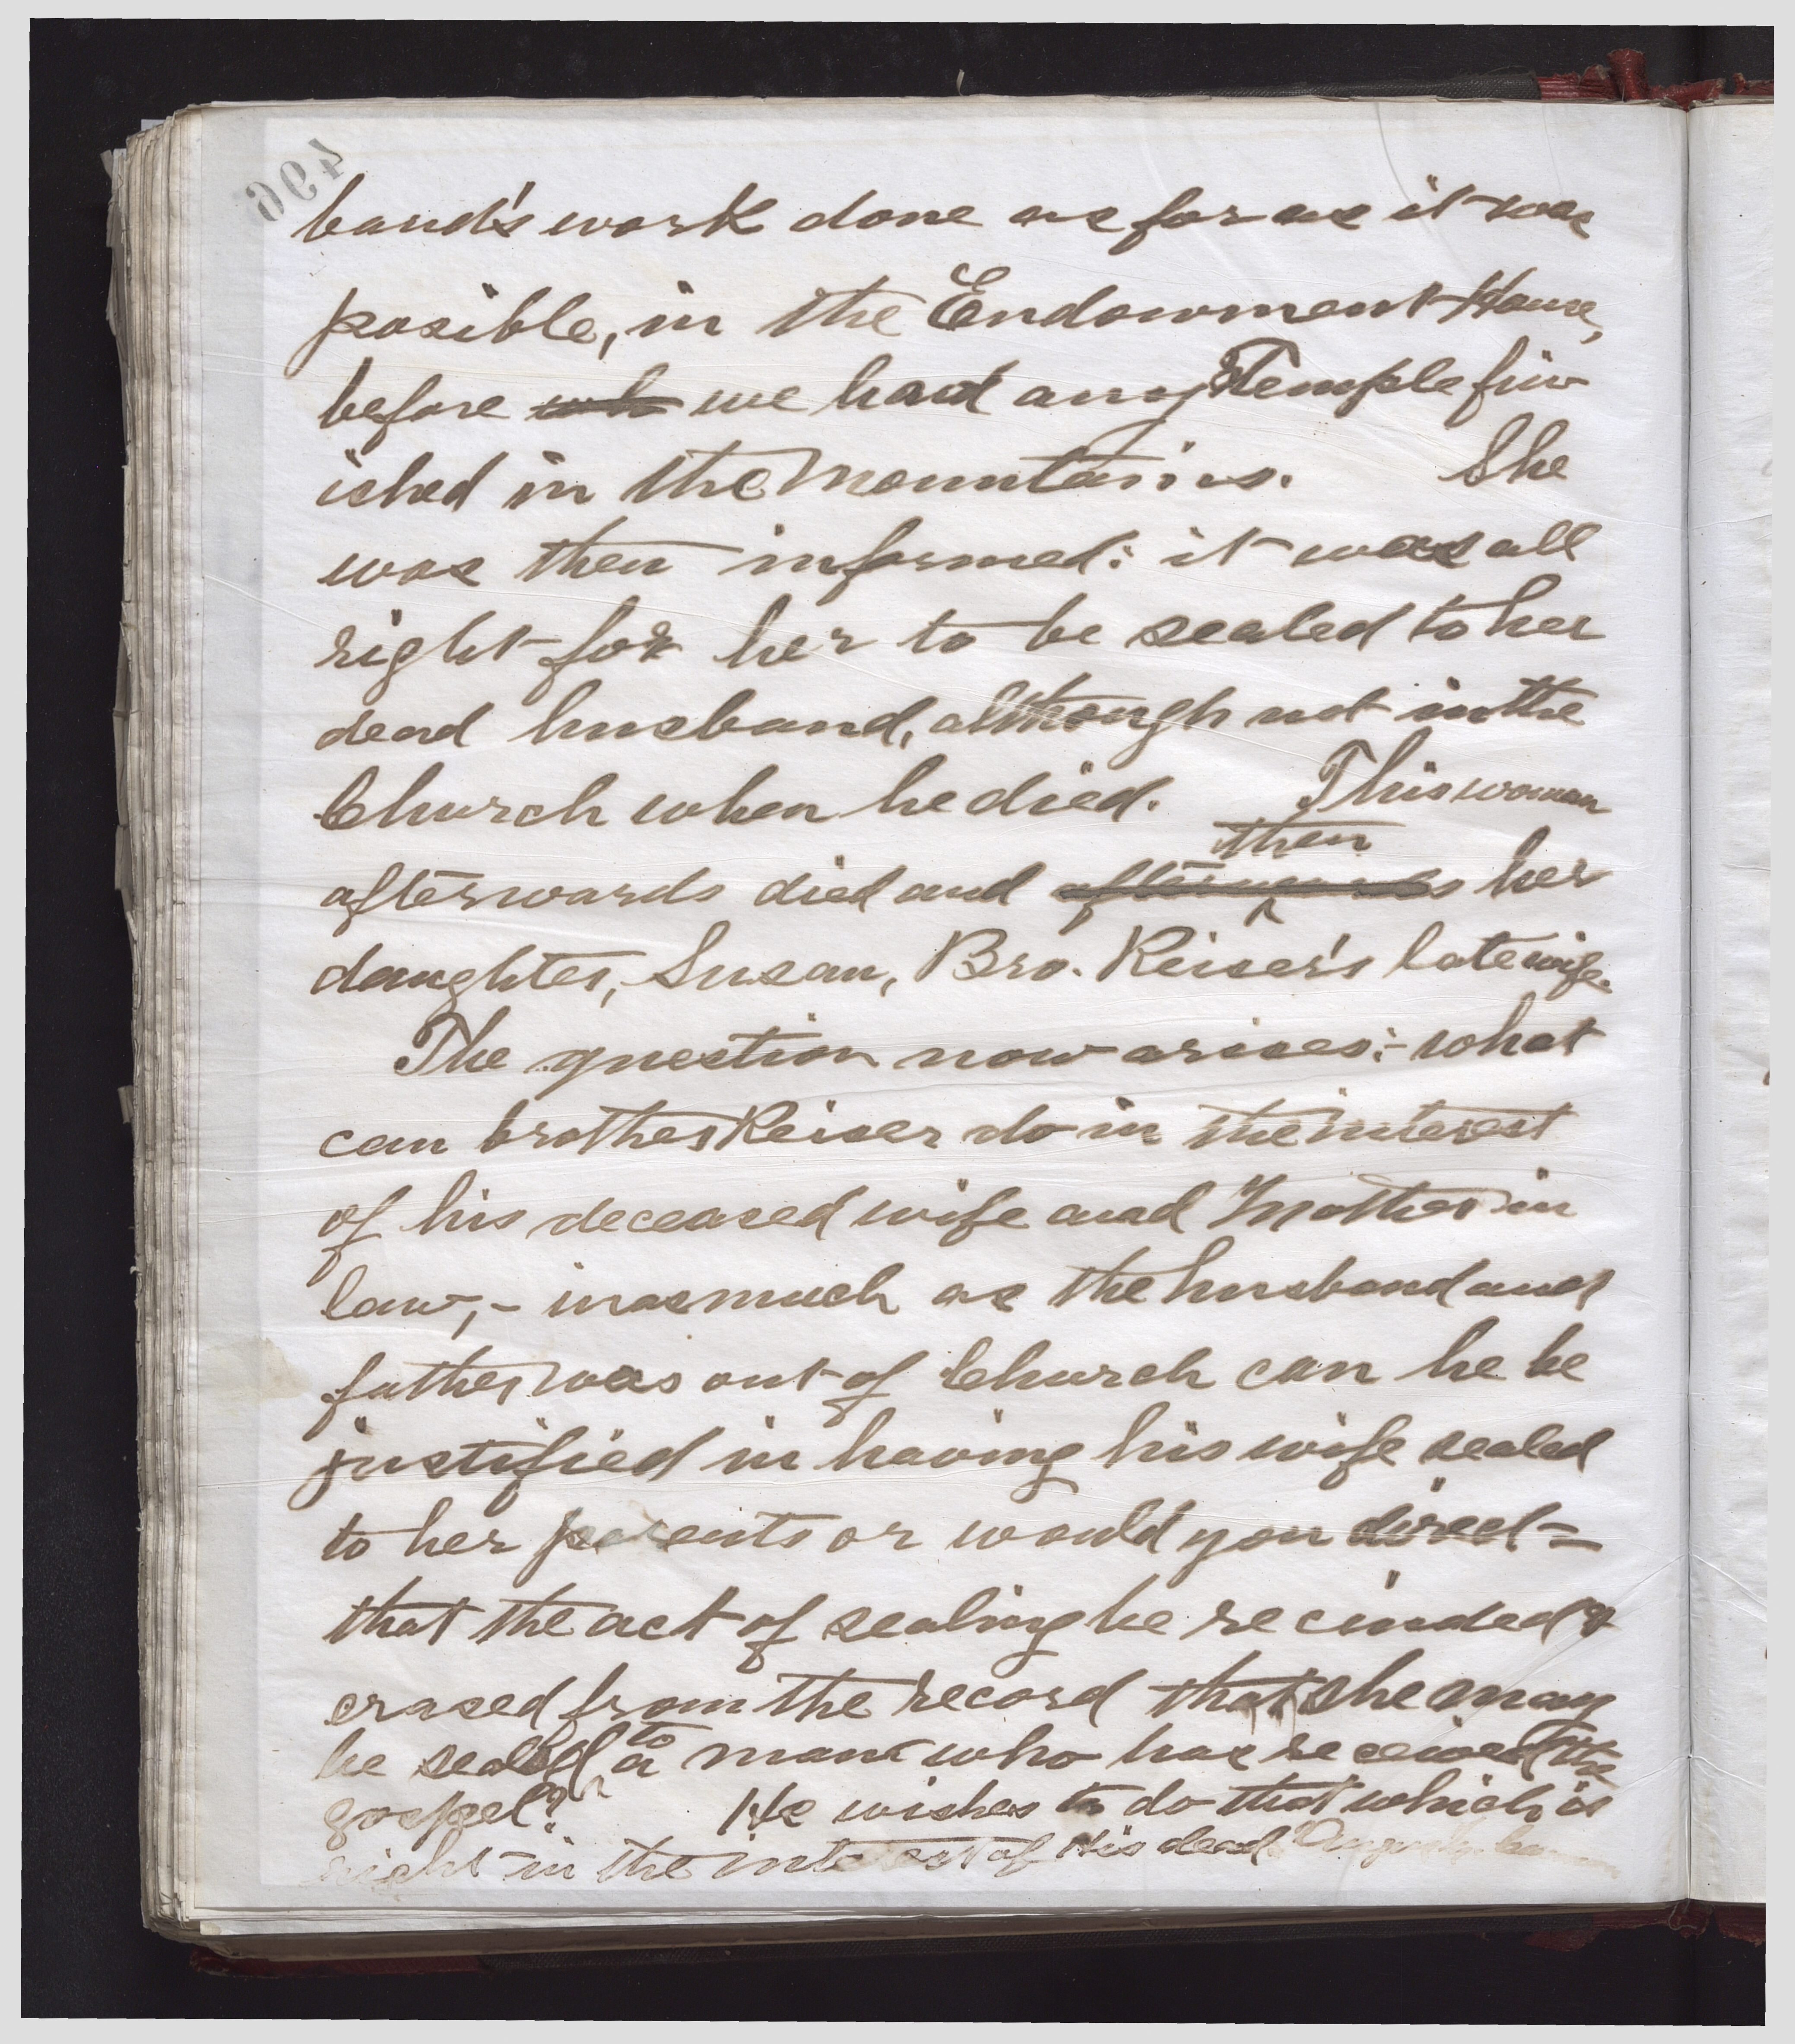 496
band's work done as far as it was
posible, in the Endowment House,
before we had any Temple fin
ished in the Mountains. She
was then informed: it was all
right for her to be sealed to her
dead husband, although not in the
Church when he died. This woman
then
afterwards died and afterwards her
daughter, Susan, Bro. Reiser's late wife.
The question now arises:- what
can brother Reiser do in the interest
of his deceased wife and Mother in
law,- inasmuch as the husband and
father was out of Church can he be
justified in having his wife sealed
to her parents or would you direct-
that the act of sealing be recinded &
erased from the record that she may
be sealed to a man who has received the
gospel? He wishes to do that which is
right in the interest of his dead.